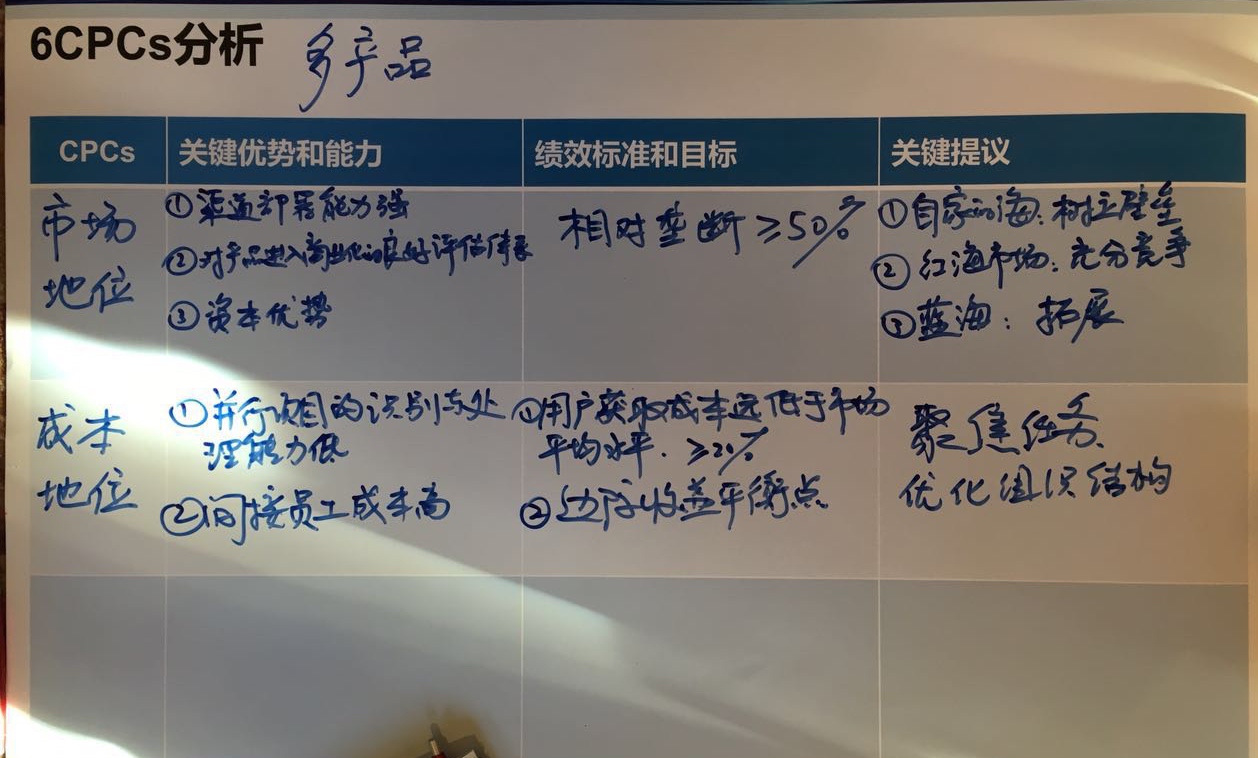 6CPCs分析 多产品
CPCs 关键优势和能力 绩效标准和目标 关键提议
市场
地位
①渠道部署能力强
②对产品进入商业化的良好评估体系
③资本优势
相对垄断≥50%
①自家的海:树立壁垒
②红海市场:充分竞争
③蓝海:拓展
成本
地位
①并行项目的识别与处
理能力低
②间接员工成本高
①用户获取成本远低于市场
平均水平.≥20%
②边际收益平衡点
聚焦任务、
优化组织结构